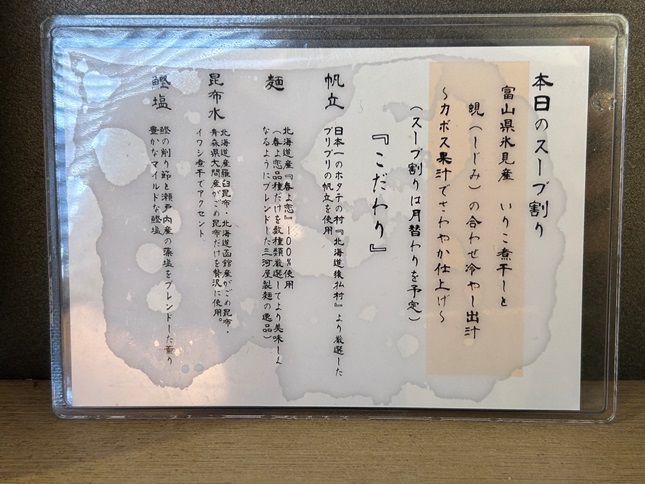 本日のスープ割り
富山県氷見産　いりこ煮干しと
蜆（しじみ）の合わせ冷やし出汁
～カボス果汁でさわやか仕上げ～
（スープ割りは月替わりを予定）
『こだわり』
帆立
日本一のホタテの村『北海道猿払村』より厳選した
プリプリの帆立を使用
麺
北海道産『春よ恋』100%使用
（春よ恋品種だけを数種類厳選してより美味しく
なるようにブレンドした三河屋製麺の逸品）
昆布水
北海道産羅臼昆布・北海道函館産がごめ昆布・
青森県大間産がごめ昆布だけを贅沢に使用。
イワシ煮干でアクセント
鰹塩
鰹の削り節と瀬戸内産の藻塩をブレンドした薫り
豊かなマイルドな鰹塩